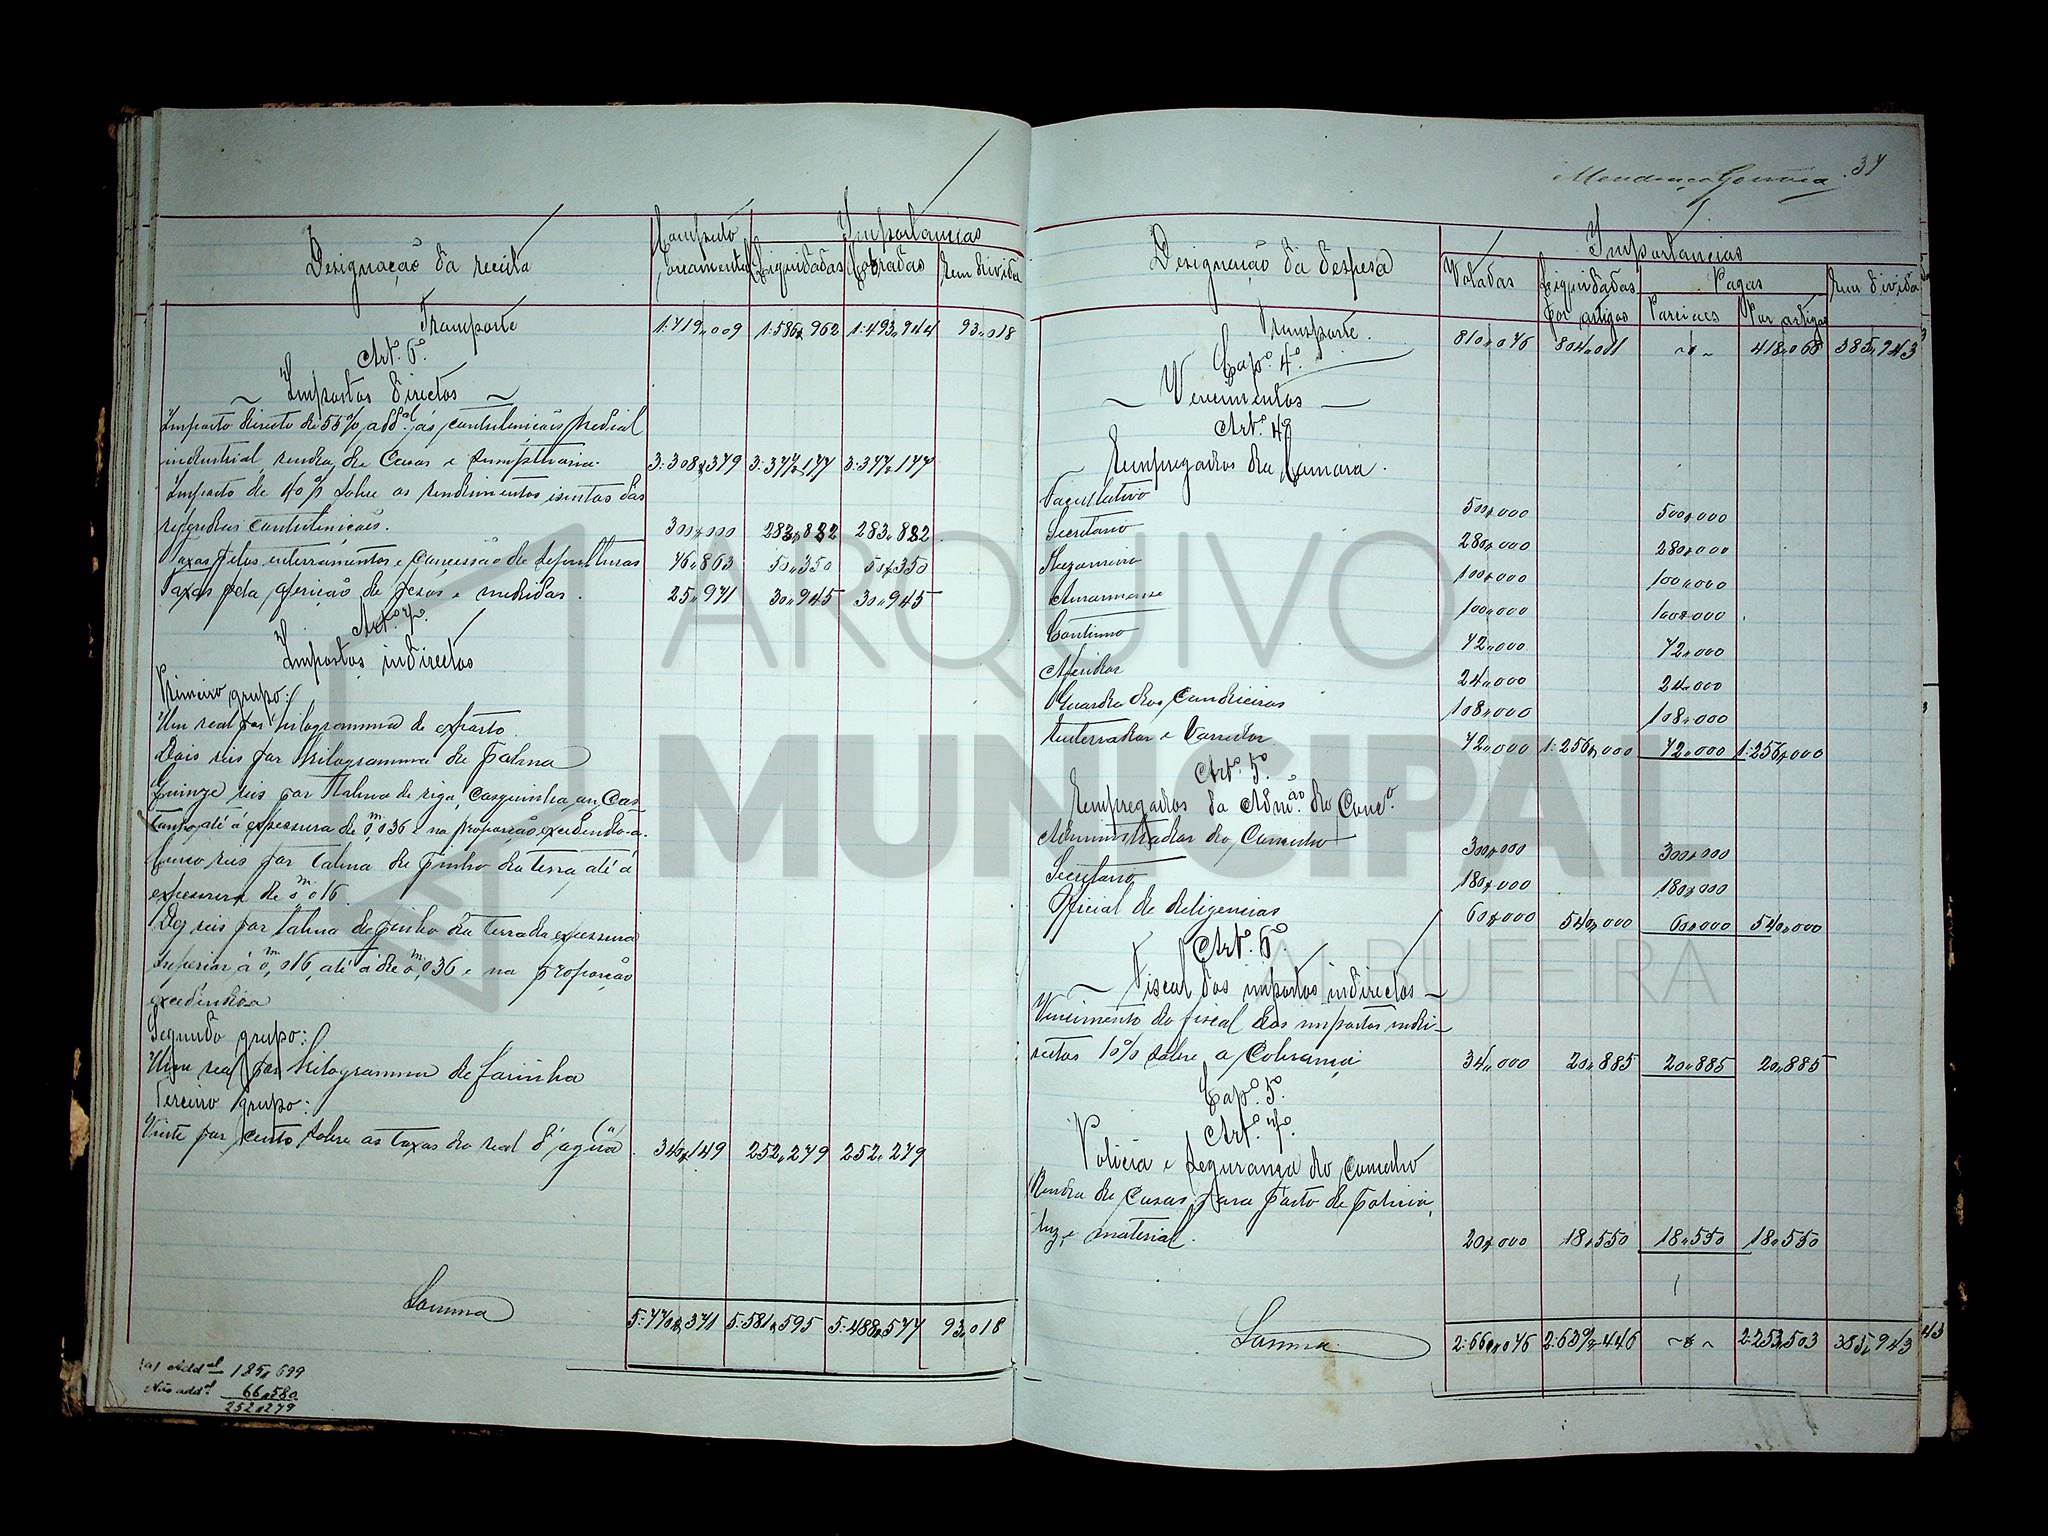 Mendonça Gouveia 34
Designação da receita Computo Orçamental Importancias Liquidadas Cobradas Em divida
Transporte 1:719,009 1:586,962 1:493,944 93,018
Artº. 6º.
Impostos directos
Imposto directo de 55%, add.al ás contribuições predial
industrial, renda de Casas e sumptuaria. 3:308,379 3:377,177 3:377,177
Imposto de 40% sobre os rendimentos isentos das
referidas contribuições. 300,000 283,882 283,882
Taxas pelos enterramentos e concessão de sepulturas 46,863 50,350 50,350
Taxas pela aferição de pesos e medidas. 25,971 30,945 30,945
Artº. 7º.
Impostos indirectos
Primeiro grupo:
Um real por kilogramma de esparto.
Dois reis por kilogramma de palma
Quinze reis por taboa de riga, Casquinha ou Cas-
tanho até á espessura de 0,m036 e na proporção, excedendo-a.
Cinco reis por taboa de pinho da terra, até á
espessura de 0,m016.
Dez reis por taboa de pinho da terra da espessura
superior á 0,m016 até á de 0,m036 e na proporção
excedendo a
Segundo grupo:
Um real por kilogramma de farinha
Terceiro grupo:
Vinte por cento sobre as taxas do real d'agua (a) 340,149 252,279 252,279
Somma 5:740,371 5:581,595 5:488,577 93,018
(a) Add.al 185,699
Não add.al 66,580
252,279
Designação da despesa Importancias
Votadas Liquidadas Por artigos Pagas Parciaes Por artigos Em divida
Transporte. 810,076 804,011 418,068 385,943
Capº. 4º.
Vencimentos
Artº. 4º
Empregados da Camara.
Facultativo 500,000 500,000
Secretario 280,000 280,000
Thezoureiro 100,000 100,000
Amanuense 100,000 100,000
Continuo 72,000 72,000
Aferidor 24,000 24,000
Guarda dos Candieiros 108,000 108,000
Enterrador e Varredor 72,000 1:256,000 72,000 1:256,000
Artº. 5º
Empregados da Adm.ão do Conc.º
Administrador do Concelho 300,000 300,000
Secretario 180,000 180,000
Official de deligencias 60,000 540,000 60,000 540,000
Artº. 6º
Fiscal dos impostos indirectos
Vencimento do fiscal dos impostos indi-
rectos 10% sobre a cobrança 34,000 20,885 20,885 20,885
Capº. 5º.
Artº. 7º.
Policia e segurança do Concelho
Renda de Casas para posto de policia,
luz, e material. 20,000 18,550 18,550 18,550
Somma 2:660,076 2:639,446 2:253,503 385,943
ARQUIVO
MUNICIPAL
ALBUFEIRA